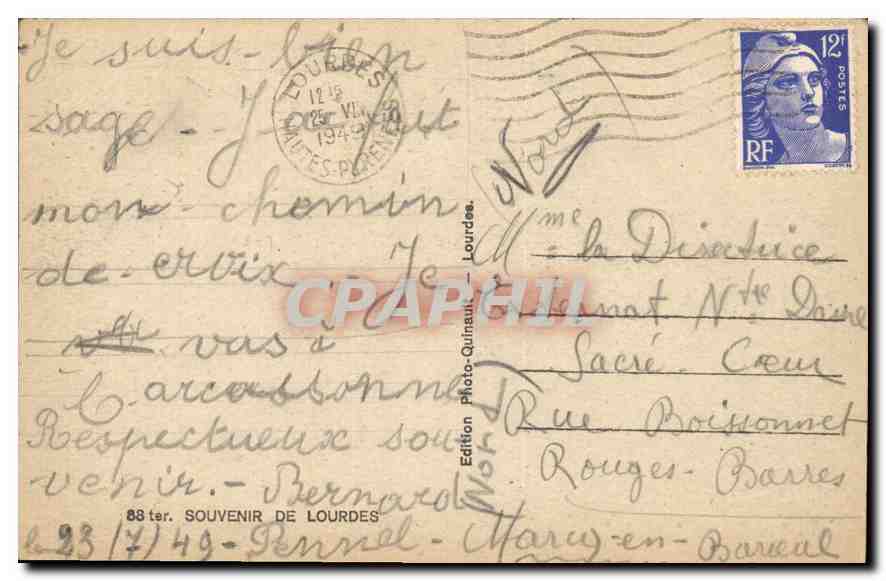 Je suis-bien
sage- J'ai fait
mon-chemin
de-croix.- Je
vas à
Carcassonne
Respectueux sou-
venir.- Bernard
88 ter. SOUVENIR DE LOURDES
le 23/7/49- Pennel-
LOURDES
12H15
25 VII
1949
HAUTES-PYRENEES
12F
POSTES
RF
Nord
Edition Photo-Quinault - Lourdes.
CPAPHIL
Mme la Directrice
Externat Ntre Dame
Sacré Cœur
Rue Boissonnet
Rouges-Barres
Nord
Marcq-en-Barœul